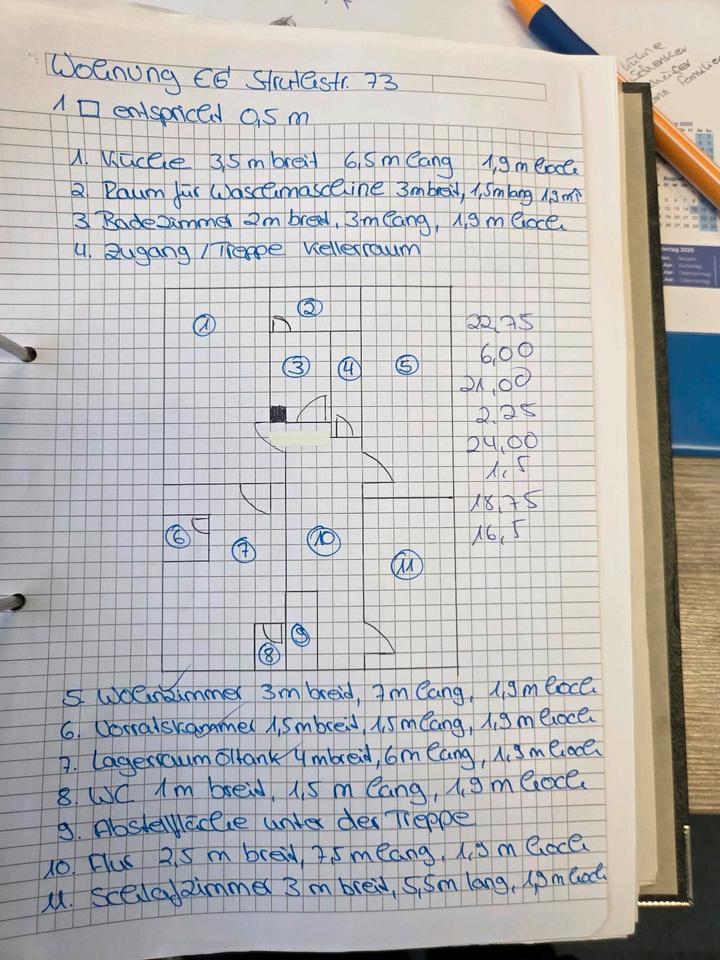 Wohnung EG Struthstr. 73
1 □ entspricht 0,5 m
1. Küche 3,5 m breit 6,5 m lang 1,9 m hoch
2. Raum für Waschmaschine 3m breit, 1,5m lang 1,9m
3 Badezimmer 2m breit, 3m lang, 1,9 m hoch
4. Zugang / Treppe Kellerraum
1
2
3
4
5
6
7
8
9
10
11
22,75
6,00
21,00
2.25
24,00
1,5
18,75
16,5
5. Wohnzimmer 3m breid, 7m lang, 1,9 m hoch
6. Vorratskammer 1,5m breid, 1,5m lang, 1,9 m hoch
7. Lagerraum Öltank 4 m breid, 6 m lang, 1,9 m hoch
8. WC 1m breid, 1,5 m lang, 1,9 m hoch
9. Abstellfläche unter der Treppe
10. Flur 2,5 m breid, 7,5 m lang, 1,9 m hoch
11. Schlafzimmer 3 m breid, 5,5m lang, 1,9m hoch